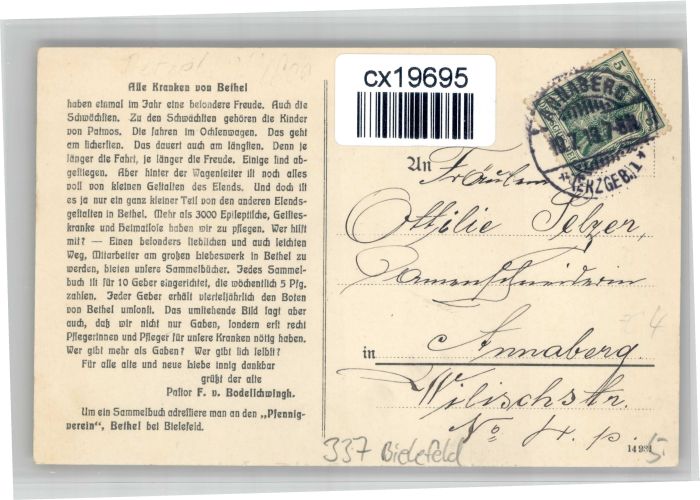 Alle Kranken von Bethel
haben einmal im Jahr eine besondere Freude. Auch die
Schwächsten. Zu den Schwächsten gehören die Kinder
von Patmos. Die fahren im Ochsenwagen. Das geht
am sichersten. Das dauert auch am längsten. Denn je
länger die Fahrt, je länger die Freude. Einige sind ab-
gestiegen. Aber hinter der Wagenleiter ist noch alles
voll von kleinen Gestalten des Elends. Und doch ist
es ja nur ein ganz kleiner Teil von den anderen Elends-
gestalten in Bethel. Mehr als 3000 Epileptische, Geistes-
kranke und Heimatlose haben wir zu pflegen. Wer hilft
mit? — Einen besonders lieblichen und auch leichten
Weg, Mitarbeiter am großen Liebeswerk in Bethel zu
werden, bieten unsere Sammelbücher. Jedes Sammel-
buch ist für 10 Geber eingerichtet, die wöchentlich 5 Pfg.
zahlen. Jeder Geber erhält vierteljährlich den Boten
von Bethel umsonst. Das umstehende Bild sagt aber
auch, daß wir nicht nur Gaben, sondern erst recht
Pflegerinnen und Pfleger für unsere Kranken nötig haben.
Wer gibt mehr als Gaben? Wer gibt sich selbst?
Für alle alte und neue Liebe innig dankbar
grüßt der alte
Pastor F. v. Bodelschwingh.
Um ein Sammelbuch adressiere man an den „Pfennig-
verein", Bethel bei Bielefeld.
cx19695
5
ANNABERG
(ERZGEB.) 1
An Fräulein
Ottilie Selzer,
Damenschneiderin
in Annaberg.
Wilischstr.
No 4. p.
337 Bielefeld
14981
5